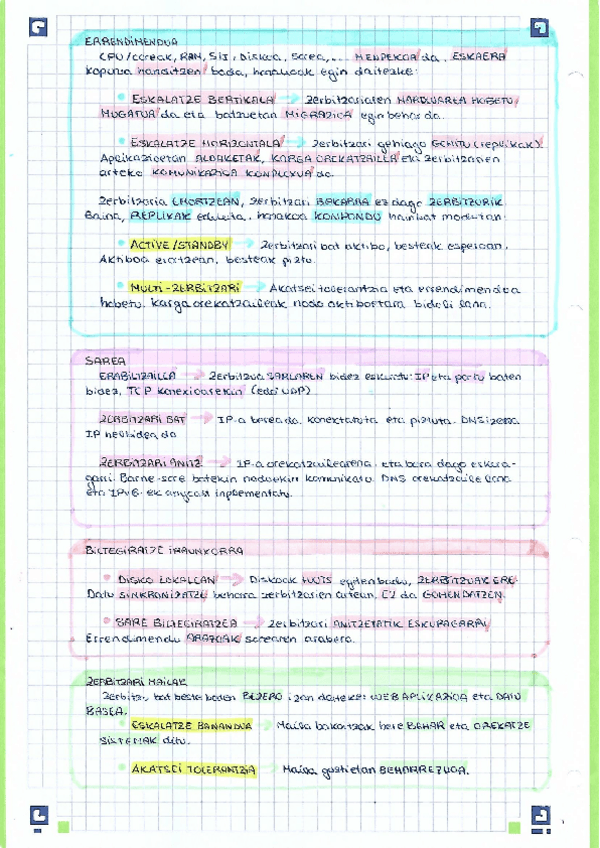 ERRENDIMENDUA
CPU/coreak, RAM, S.I., Diskoa, Sarea,... MENPEKOA da. ESKAERA
kopurua handitzen bada, honakoak egin daitezke:
• ESKALATZE BERTIKALA → Zerbitzariaren HARDWAREA HOBETU.
MUGATUA da eta batzuetan MIGRAZIOA egin behar da.
• ESKALATZE HORIZONTALA → Zerbitzari gehiago GEHITU (replikak).
Aplikazioetan ALDAKETAK, KARGA OREKATZAILEA eta zerbitzarien
arteko KOMUNIKAZIOA KONPLEXUA da.
Zerbitzaria ERORTZEAN, zerbitzari BAKARRA ez dago ZERBITZURIK
Baina, REPLIKAK edukita, honakoa KONPONDU hainbat modutan:
• ACTIVE/STANDBY → Zerbitzari bat aktibo, besteak esperoan.
Aktiboa erortzean, besteak piztu.
• MULTI-ZERBITZARI → Akatsei tolerantzia eta errendimendua
hobetu. Karga orekatzaileak nodo aktiboetara bideli lana.
SAREA
ERABILTZAILEA → Zerbitzua SAREAREN bidez eskuratu: IP eta portu baten
bidez, TCP konexioarekin (edo UDP)
ZERBITZARI BAT → IP-a berea da. Konektatuta eta piztuta. DNS izena
IP helbidea da
ZERBITZARI ANITZ → IP-a orekatzailearena, eta bera dago eskura-
garri. Barne-sare batekin nodoekin komunikatu. DNS orekatzaile lana
eta IPv6-ek anycast inplementatu.
BILTEGIRATZE IRAUNKORRA
• DISKO LOKALEAN → Diskoak HUTS egiten badu, ZERBITZUAK ERE.
Datu SINKRONIZATZE beharra zerbitzarien artean. EZ da GOMENDATZEN.
• SARE BILTEGIRATZEA → Zerbitzari ANITZETATIK ESKURAGARRI
Errendimendu ARAZOAK sarearen arabera.
ZERBITZARI MAILAK
Zerbitz. bat beste baten BEZERO izan daiteke: WEB APLIKAZIOA eta DATU
BASEA.
• ESKALATZE BANANDUA → Maila bakoitzak bere BEHAR eta OREKATZE
SISTEMAK ditu.
• AKATSEI TOLERANTZIA → Maila guztietan BEHARREZKOA.